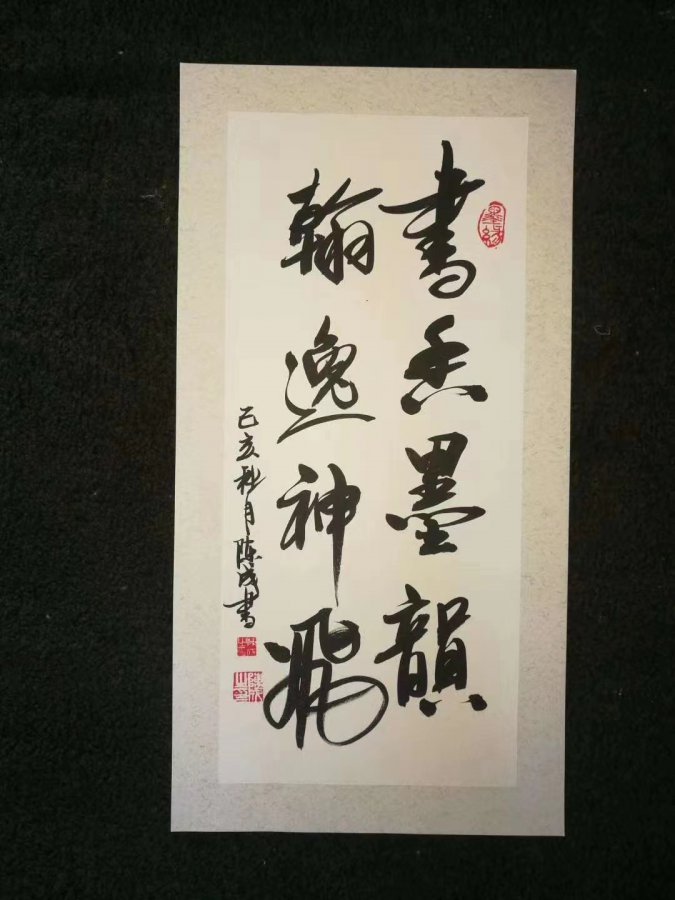 書香墨韻
翰逸神飛
己亥秋月陈成書